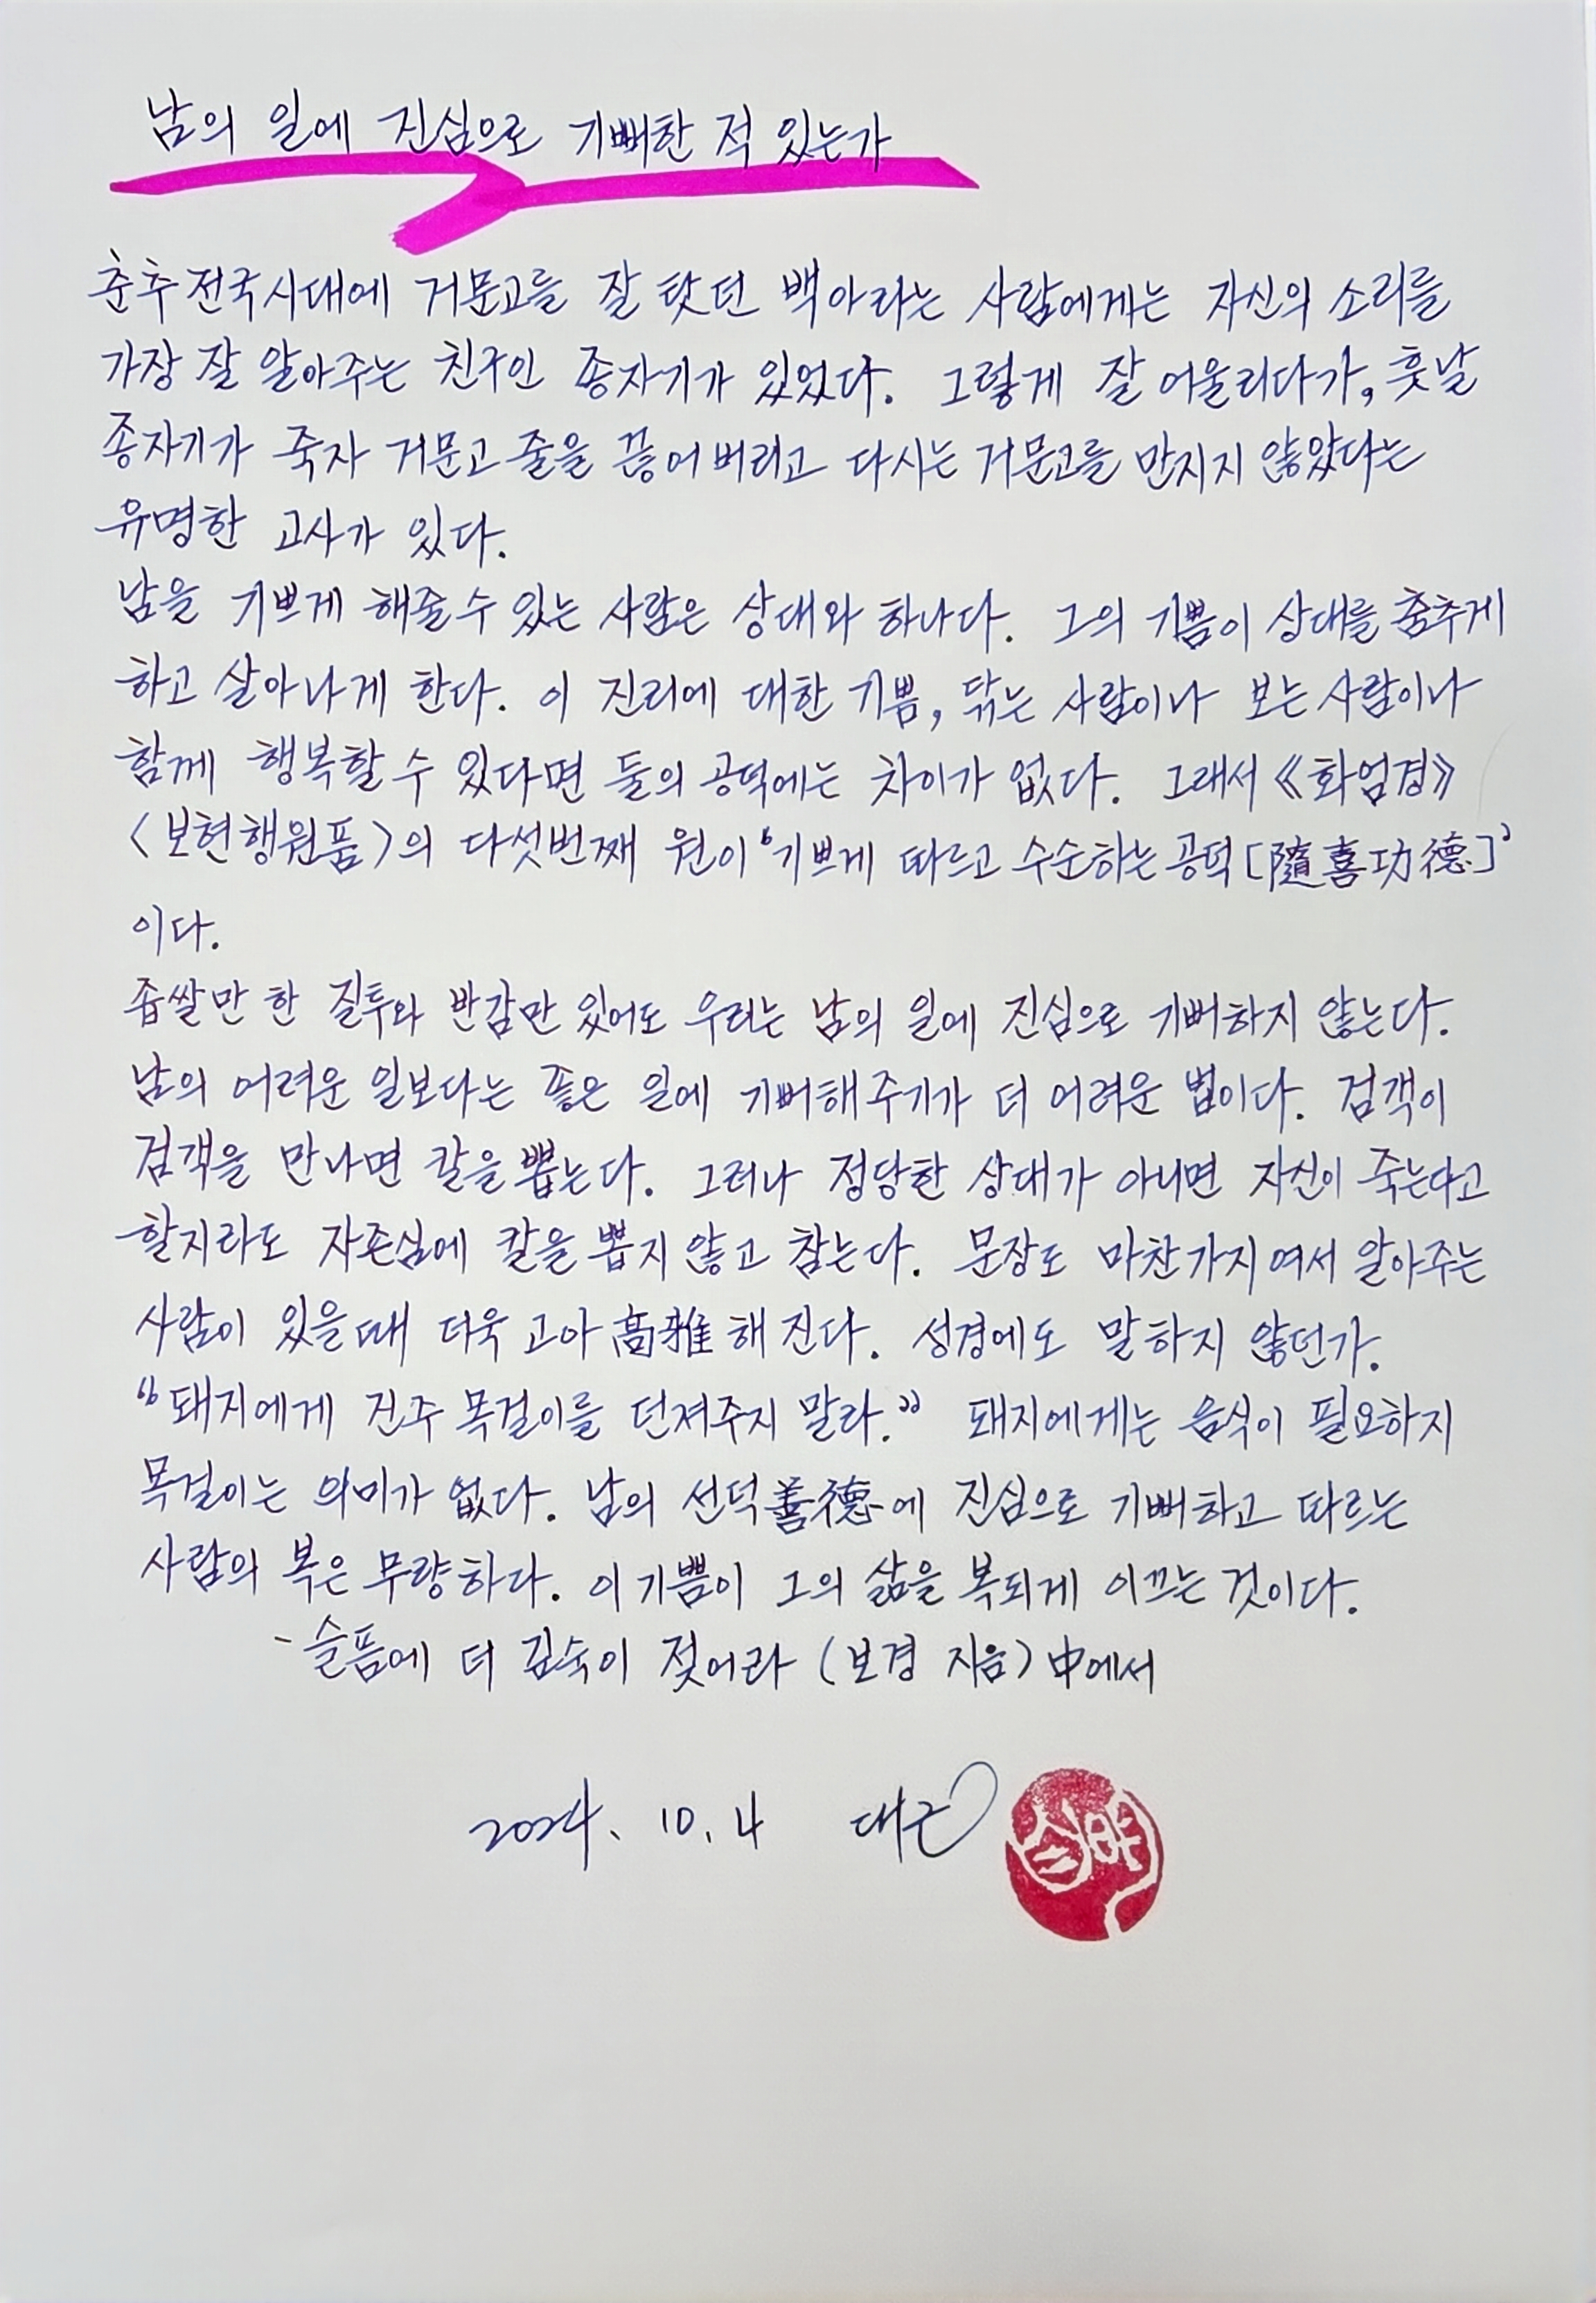 남의 일에 진심으로 기뻐한 적 있는가
춘추전국시대에 거문고를 잘 탓던 백아라는 사람에게는 자신의 소리를
가장 잘 알아주는 친구인 종자기가 있었다. 그렇게 잘 어울리다가, 훗날
종자기가 죽자 거문고 줄을 끊어버리고 다시는 거문고를 만지지 않았다는
유명한 고사가 있다.
남을 기쁘게 해줄 수 있는 사람은 상대와 하나다. 그의 기쁨이 상대를 춤추게
하고 살아나게 한다. 이 진리에 대한 기쁨, 닦는 사람이나 보는 사람이나
함께 행복할 수 있다면 둘의 공덕에는 차이가 없다. 그래서 《화엄경》
〈보현행원품〉의 다섯번째 원이 '기쁘게 따르고 수순하는 공덕[隨喜功德]'
이다.
좁쌀만 한 질투와 반감만 있어도 우리는 남의 일에 진심으로 기뻐하지 않는다.
남의 어려운 일보다는 좋은 일에 기뻐해 주기가 더 어려운 법이다. 검객이
검객을 만나면 칼을 뽑는다. 그러나 정당한 상대가 아니면 자신이 죽는다고
할지라도 자존심에 칼을 뽑지 않고 참는다. 문장도 마찬가지여서 알아주는
사람이 있을 때 더욱 고아高雅해진다. 성경에도 말하지 않던가.
"돼지에게 진주 목걸이를 던져주지 말라." 돼지에게는 음식이 필요하지
목걸이는 의미가 없다. 남의 선덕善德에 진심으로 기뻐하고 따르는
사람의 복은 무량하다. 이 기쁨이 그의 삶을 복되게 이끄는 것이다.
- 슬픔에 더 깊숙이 젖어라 (보경 지음) 中에서
2024. 10. 4 대근